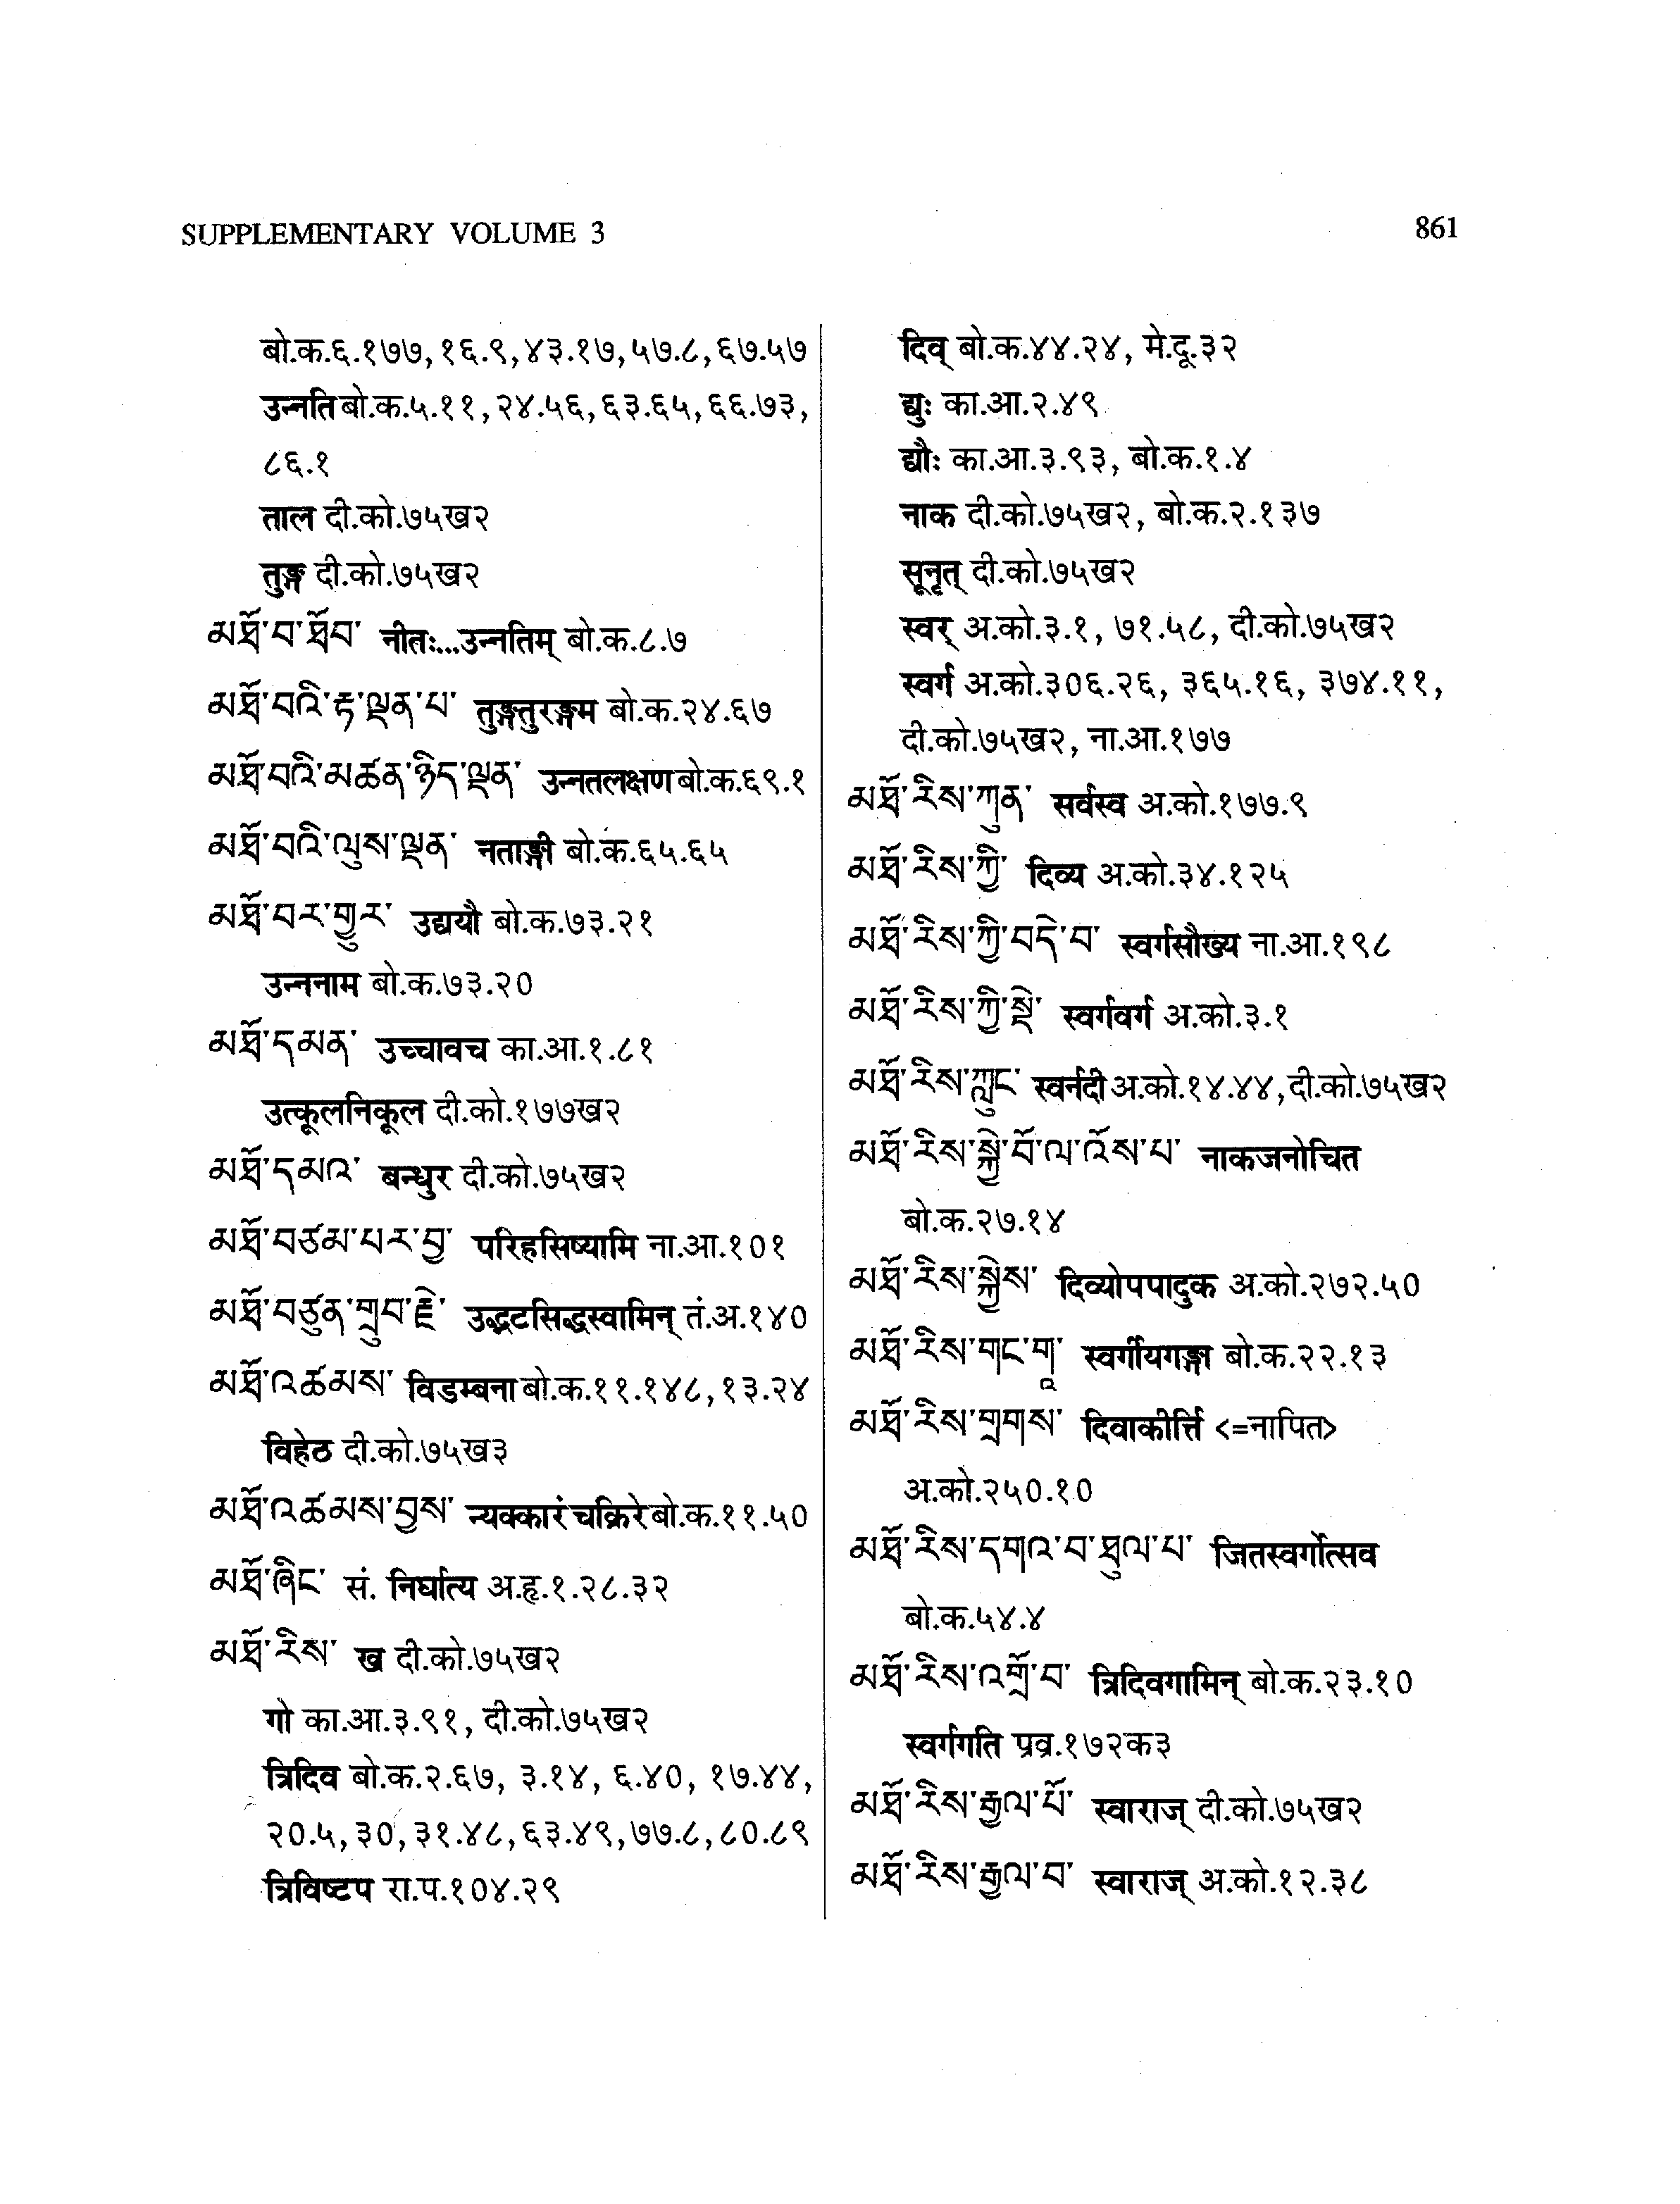 SUPPLEMENTARY VOLUME 3
861
बो.क.६.१७७,१६.९,४३.१७,५७.८,६७.५७
उन्नति बो.क.५.११,२४.५६,६३.६५,६६.७३,
८६.१
ताल दी.को.७५ख२
तुङ्ग दी.को.७५ख२
མཐོ་བ་ཐོབ་ नीतः...उन्नतिम् बो.क.८.७
མཐོ་བའི་རྟ་ལྡན་པ་ तुङ्गतुरङ्गम बो.क.२४.६७
མཐོ་བའི་མཚན་ཉིད་ལྡན་ उन्नतलक्षण बो.क.६९.१
མཐོ་བའི་ལུས་ལྡན་ नताङ्गी बो.क.६५.६५
མཐོ་བར་གྱུར་ उद्ययौ बो.क.७३.२१
उन्ननाम बो.क.७३.२०
མཐོ་དམན་ उच्चावच का.आ.१.८१
उत्कूलनिकूल दी.को.१७७ख२
མཐོ་དམའ་ बन्धुर दी.को.७५ख२
མཐོ་བཙམ་པར་བྱ་ परिहसिष्यामि ना.आ.१०१
མཐོ་བཙུན་གྲུབ་རྗེ་ उद्भटसिद्धस्वामिन् तं.अ.१४०
མཐོ་འཚམས་ विडम्बना बो.क.११.१४८,१३.२४
विहेठ दी.को.७५ख३
མཐོ་འཚམས་བྱས་ न्यक्कारं चक्रिरे बो.क.११.५०
མཐོ་ཞིང་ सं. निर्घात्य अ.हृ.१.२८.३२
མཐོ་རིས་ ख दी.को.७५ख२
गो का.आ.३.९१, दी.को.७५ख२
त्रिदिव बो.क.२.६७, ३.१४, ६.४०, १७.४४,
२०.५,३०,३१.४८,६३.४९,७७.८,८०.८९
त्रिविष्टप रा.प.१०४.२९
दिव् बो.क.४४.२४, मे.दू.३२
द्युः का.आ.२.४९
द्यौः का.आ.३.९३, बो.क.१.४
नाक दी.को.७५ख२, बो.क.२.१३७
सूनृत् दी.को.७५ख२
स्वर् अ.को.३.१, ७१.५८, दी.को.७५ख२
स्वर्ग अ.को.३०६.२६, ३६५.१६, ३७४.११,
दी.को.७५ख२, ना.आ.१७७
མཐོ་རིས་ཀུན་ सर्वस्व अ.को.१७७.९
མཐོ་རིས་ཀྱི་ दिव्य अ.को.३४.१२५
མཐོ་རིས་ཀྱི་བདེ་བ་ स्वर्गसौख्य ना.आ.१९८
མཐོ་རིས་ཀྱི་སྡེ་ स्वर्गवर्ग अ.को.३.१
མཐོ་རིས་ཀླུང་ स्वर्नदी अ.को.१४.४४,दी.को.७५ख२
མཐོ་རིས་སྐྱེ་བོ་ལ་འོས་པ་ नाकजनोचित
बो.क.२७.१४
མཐོ་རིས་སྐྱེས་ दिव्योपपादुक अ.को.२७२.५०
མཐོ་རིས་གང་གཱ་ स्वर्गीयगङ्गा बो.क.२२.१३
མཐོ་རིས་གྲགས་ दिवाकीर्त्ति <=नापित>
अ.को.२५०.१०
མཐོ་རིས་དགའ་བ་ཐུལ་པ་ जितस्वर्गोत्सव
बो.क.५४.४
མཐོ་རིས་འགྲོ་བ་ त्रिदिवगामिन् बो.क.२३.१०
स्वर्गगति प्रव्र.१७२क३
མཐོ་རིས་རྒྱལ་པོ་ स्वाराज् दी.को.७५ख२
མཐོ་རིས་རྒྱལ་བ་ स्वाराज् अ.को.१२.३८